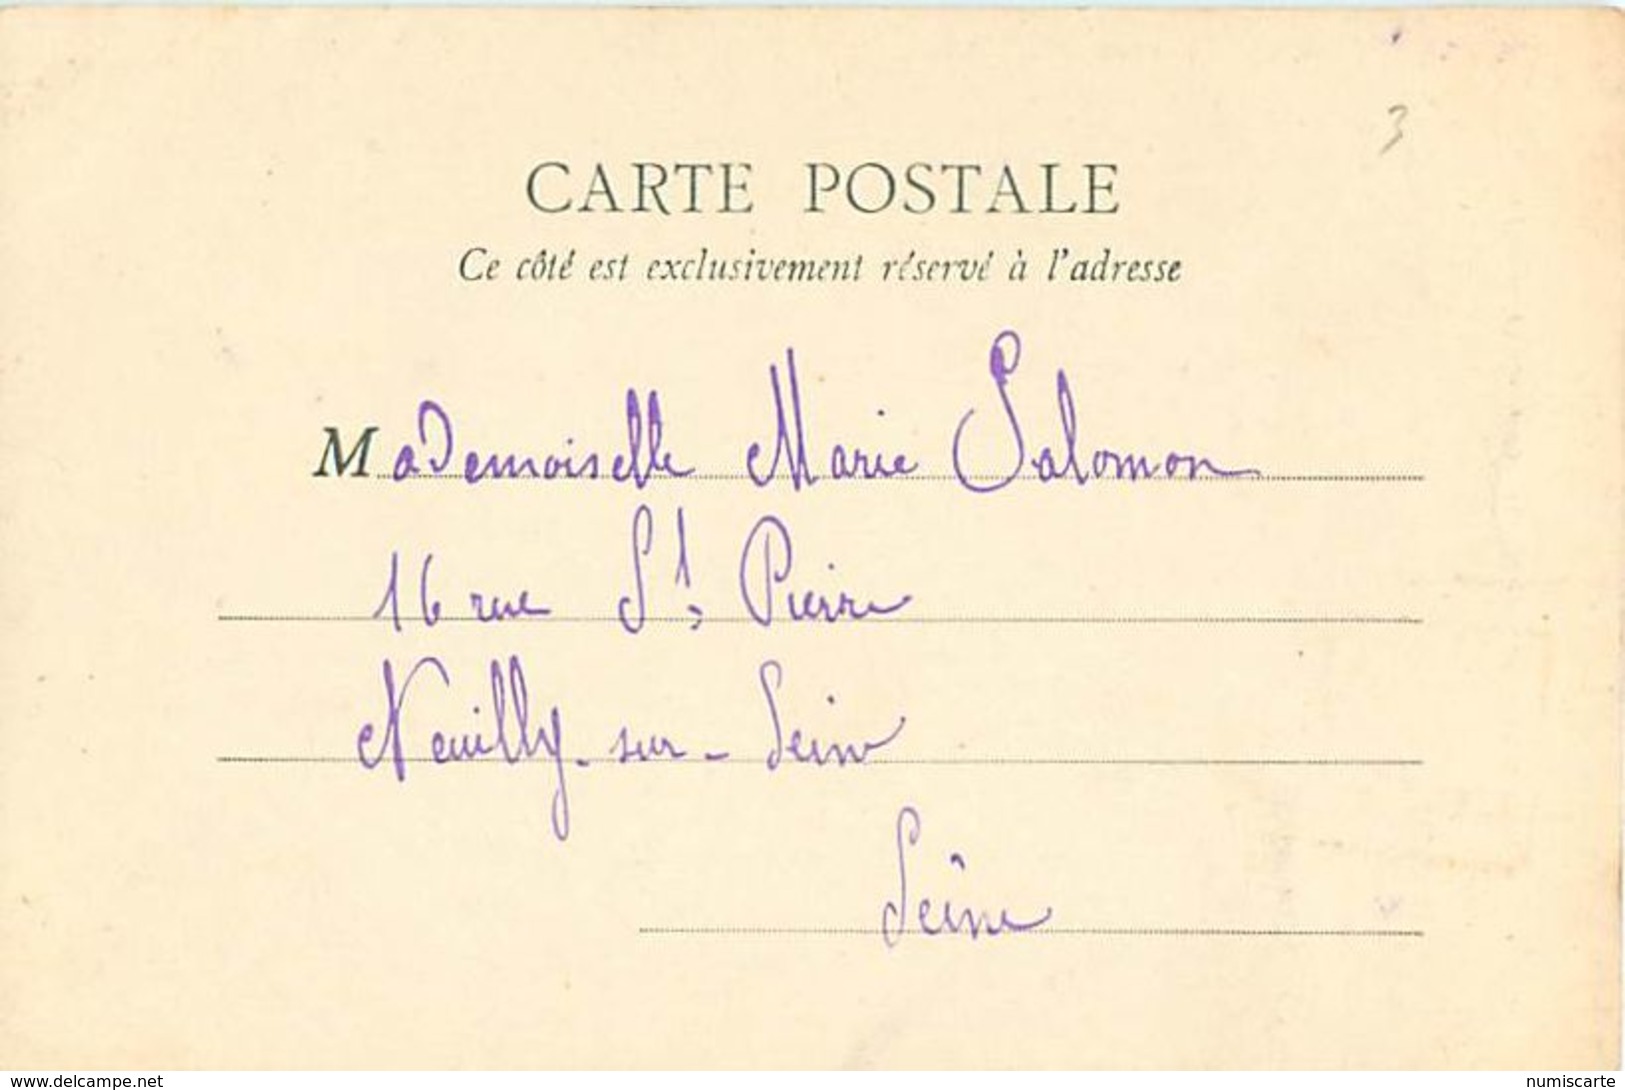 3
CARTE POSTALE
Ce côté est exclusivement réservé à l'adresse
Mademoiselle Marie Salomon
16 rue St, Pierre
Neuilly-sur-Seine
Seine
www.delcampe.net
numiscarte